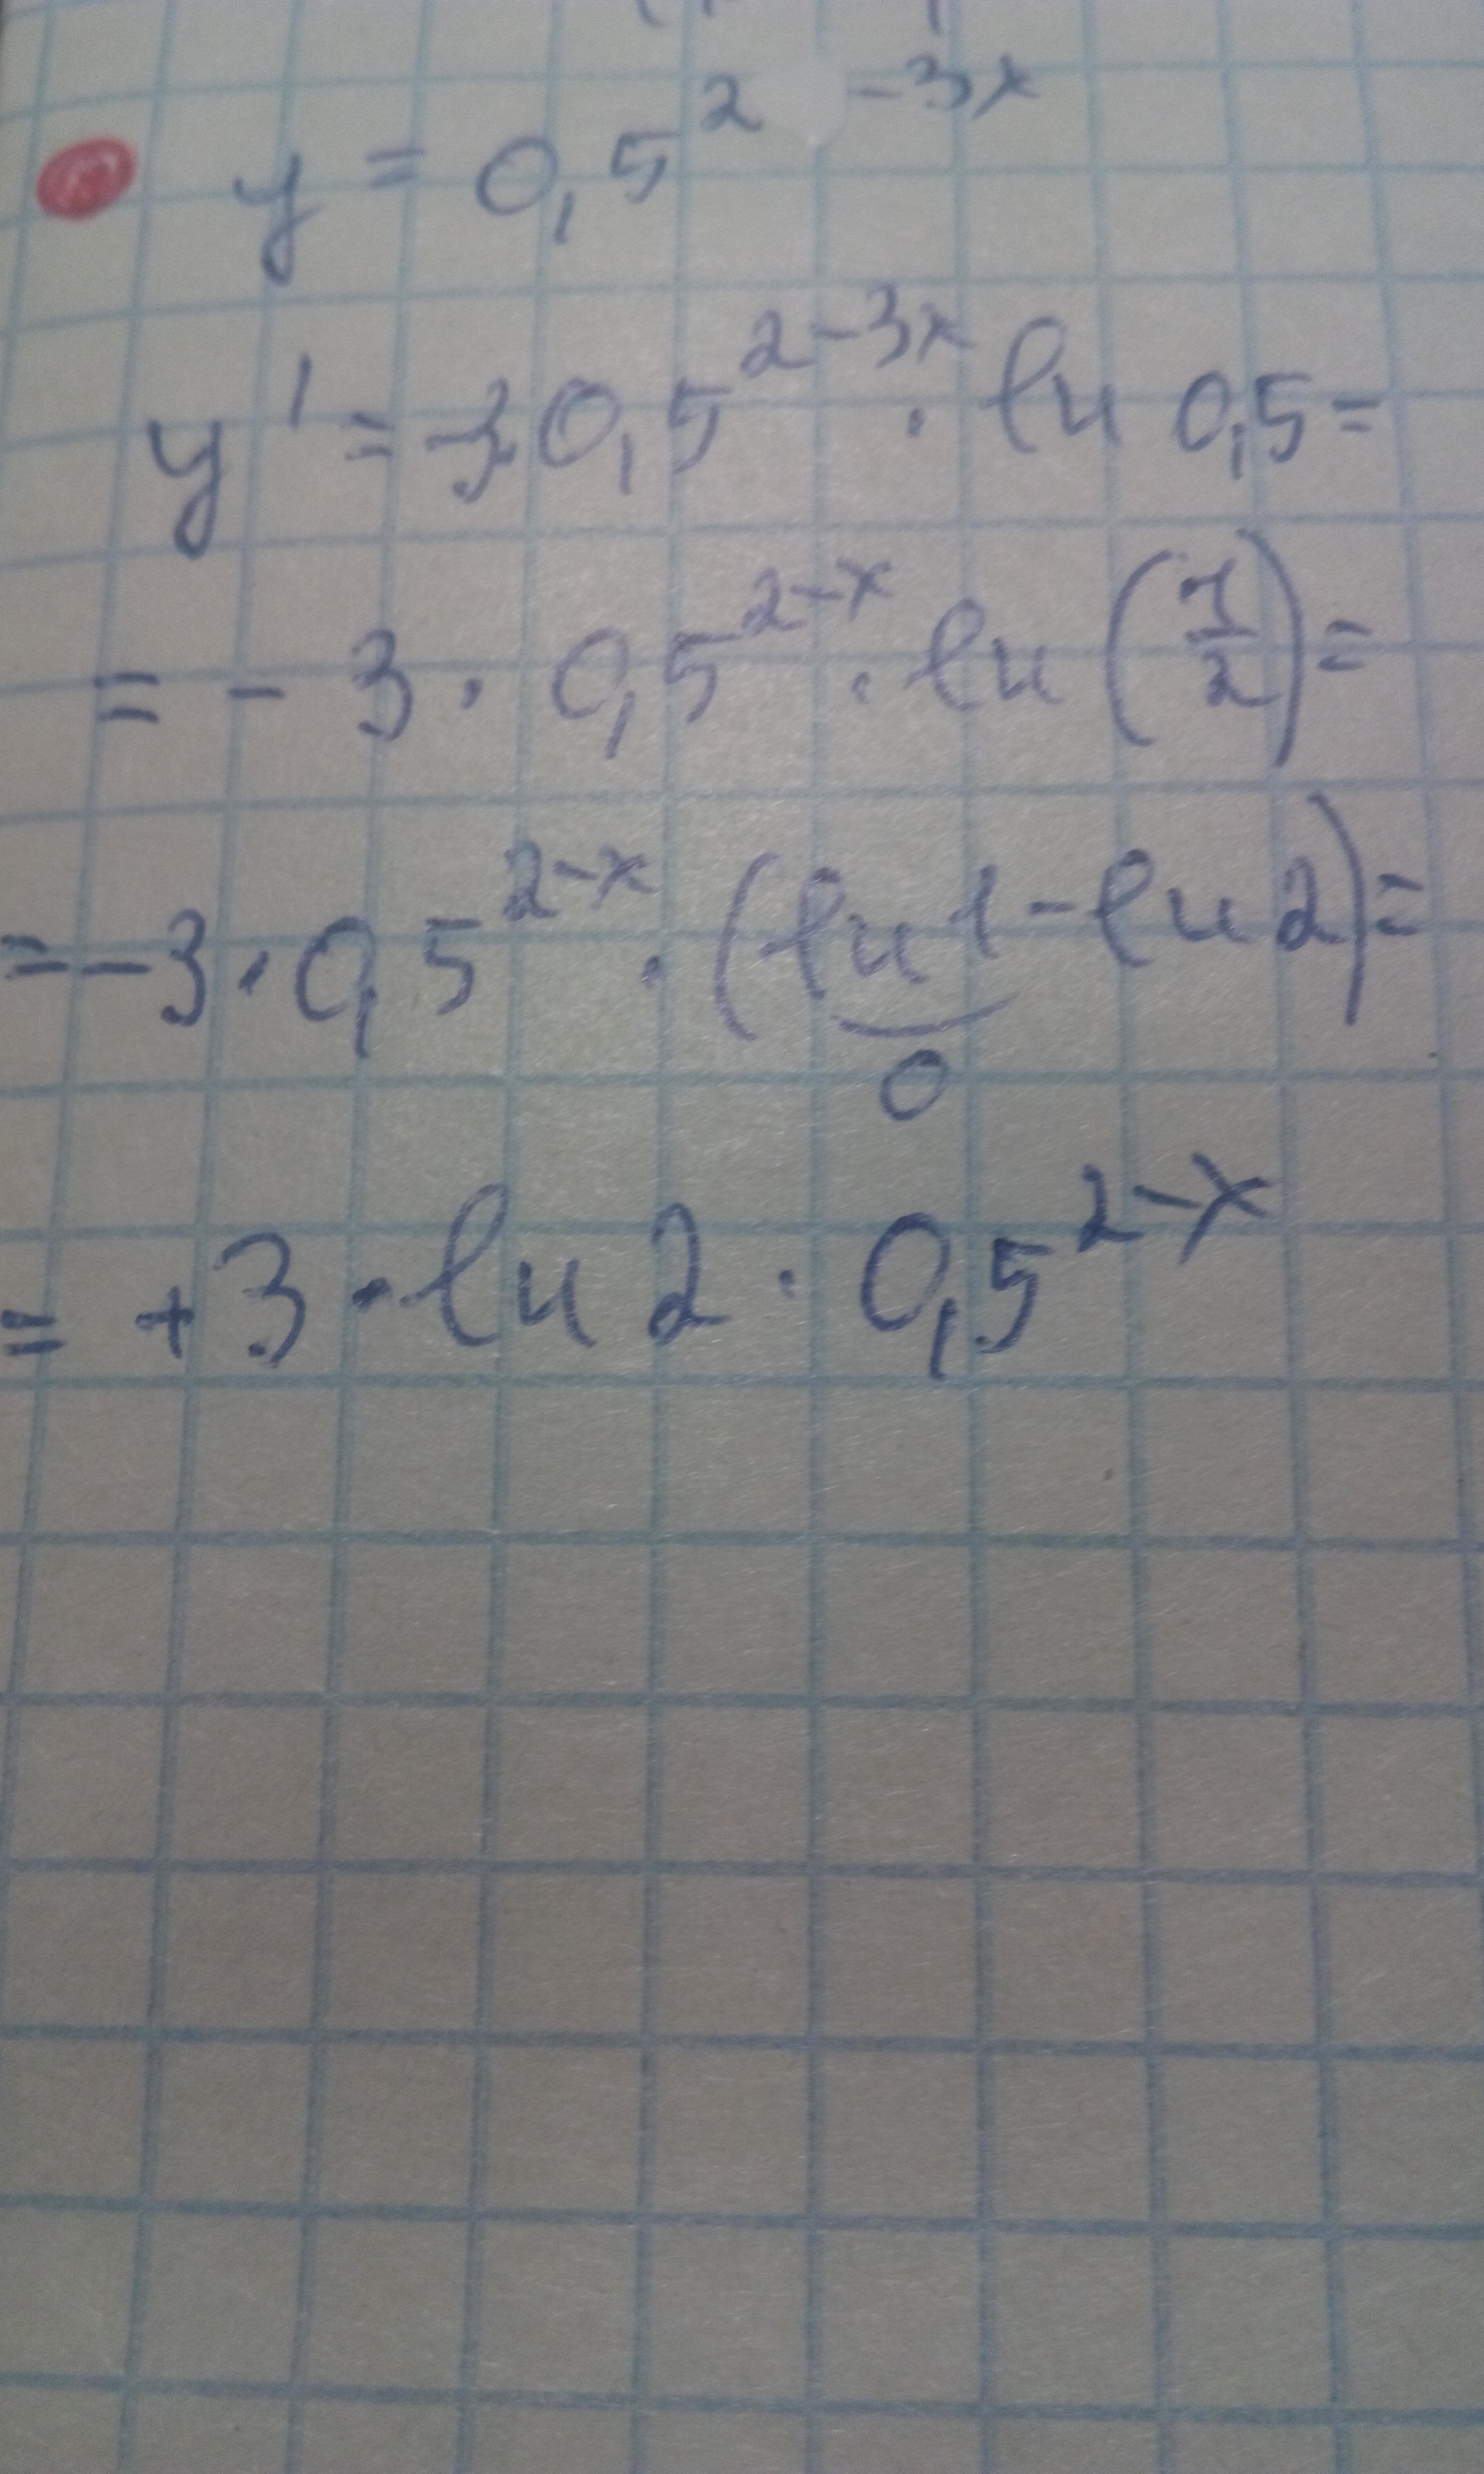 y = 0,5^2 -3x
y' = -3·0,5^2-3x · ln 0,5 =
= - 3 · 0,5^2-x · ln (1/2) =
= -3 · 0,5^2-x · (ln 1 - ln 2) =
0
= +3 · ln 2 · 0,5^2-x